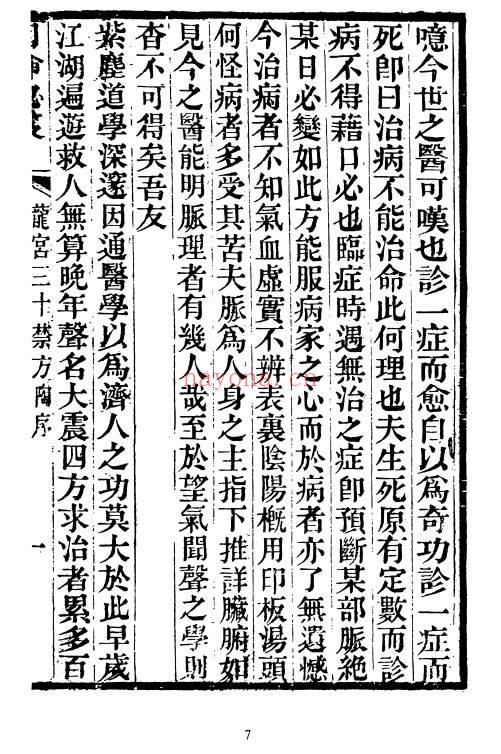 噫今世之醫可嘆也診一症而愈自以爲奇功診一症而
死卽曰治病不能治命此何理也夫生死原有定數而診
病不得藉口必也臨症時遇無治之症卽預斷某部脈絶
某日必變如此方能服病家之心而於病者亦了無遺憾
今治病者不知氣血虛實不辨表裏陰陽概用印板湯頭
何怪病者多受其苦夫脈爲人身之主指下推詳臟腑如
見今之醫能明脈理者有幾人哉至於望氣聞聲之學則
杳不可得矣吾友
紫塵道學深邃因通醫學以爲濟人之功莫大於此早歲
江湖遍遊救人無算晚年聲名大震四方求治者累多百
龍宮三十禁方陶序
一
nayona.cn
7